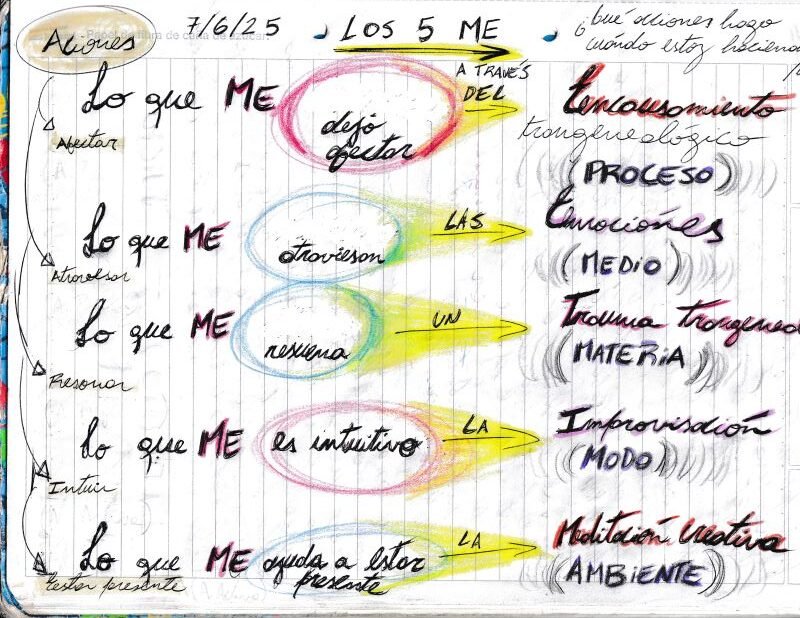 Aciones
7/6/25
LOS 5 ME
¿Qué aciones hago
cuándo estoy haciend
Lo que ME dejo afectar
A TRAVÉS DEL
Encausamiento
transgenealógico
(PROCESO)
Afectar
Lo que ME atraviesan
LAS
Emociónes
(MEDIO)
Atravesar
Lo que ME resuena
UN
Trauma
(MATERIA)
Resonar
Lo que ME es intuitivo
LA
Improvisación
(MODO)
Intuir
Lo que ME ayuda a estar presente
LA
Meditación Creativa
(AMBIENTE)
Estar presente